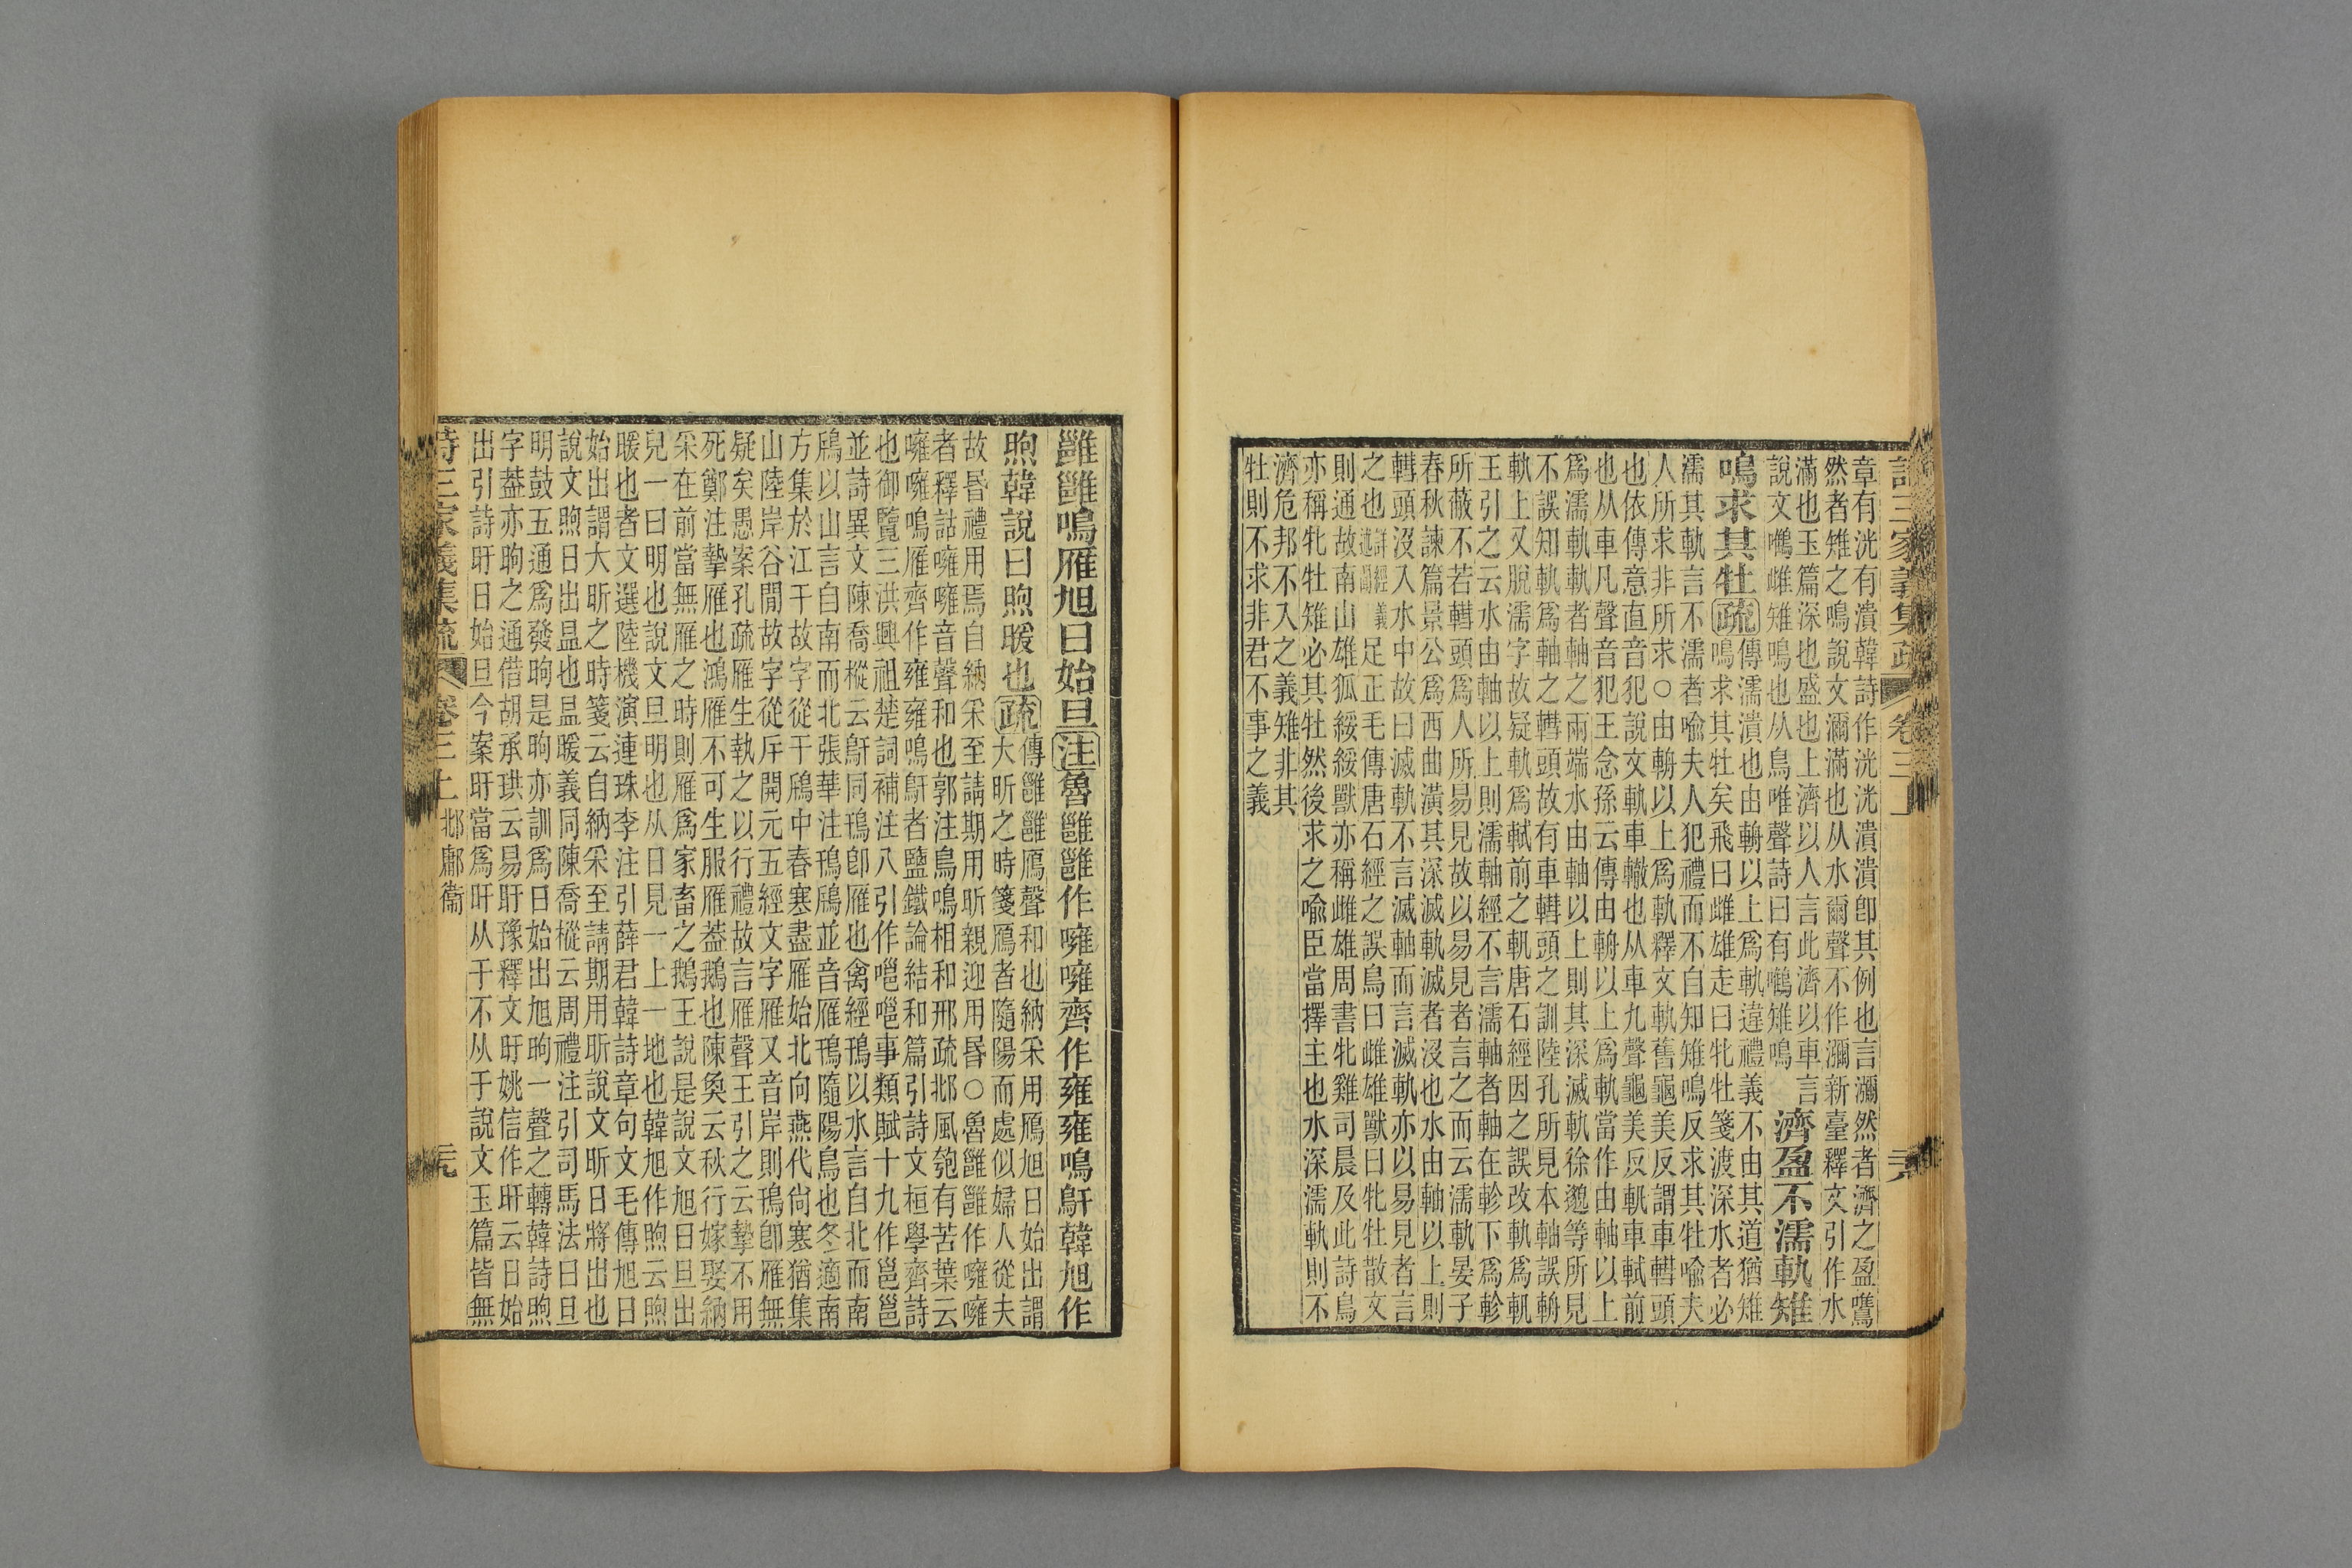 詩三家義集疏 卷三上 
章有洸有潰韓詩作洸洸潰潰卽其例也言瀰然者濟之盈鷕
然者雉之鳴說文瀰滿也从水爾聲不作瀰新臺釋文引作水
滿也玉篇深也盛也上濟以人言此濟以車言
說文鴢雌雉鳴也从鳥唯聲詩曰有鴢雉鳴
濟盈不濡軌雉
鳴求其牡疏
傳濡漬也由輈以上爲軌違禮義不由其道猶雉
鳴求其牡矣飛曰雌雄走曰牝牡箋渡深水者必
濡其軌言不濡者喩夫人犯禮而不自知雉鳴反求其牡喩夫
人所求非所求○由輈以上爲軌釋文軌舊龜美反謂車轊頭
也依傳意直音犯說文軌車轍也从車九聲龜美反軓車軾前
也从車凡聲音犯王念孫云傳由輈以上爲軌當作由軸以上
爲濡軌軌者軸之兩端水由軸以上則其深滅軌徐邈等所見
不誤知軌爲軸之轊頭故有車轊頭之訓陸孔所見本軸誤輈
軌上又脫濡字故疑軌爲軾前之軓唐石經因之誤改軌爲軓
王引之云水由軸以上則濡軸經不言濡軸者軸在軫下爲軫
所蔽不若轊頭爲人所易見故以易見者言之而云濡軌晏子
春秋諫篇景公爲西曲潢其深滅軌滅者沒也水由軸以上則
轊頭沒入水中故曰滅軌不言滅軸而言滅軌亦以易見者言
之也詳經義述聞足正毛傳唐石經之誤鳥曰雌雄獸曰牝牡散文
則通故南山雄狐綏綏獸亦稱雌雄周書牝雞司晨及此詩鳥
亦稱牝牡雉必其牡然後求之喩臣當擇主也水深濡軌則不
濟危邦不入之義雉非其
牡則不求非君不事之義
雝雝鳴雁旭日始旦注魯雝雝作噰噰齊作雍雍鳴鳱韓旭作
煦韓說曰煦暖也疏
傳雝雝鴈聲和也納采用鴈旭日始出謂
大昕之時箋鴈者隨陽而處似婦人從夫
故昏禮用焉自納采至請期用昕親迎用昏○魯雝雝作噰噰
者釋詁噰噰音聲和也郭注鳥鳴相和邢疏邶風匏有苦葉云
噰噰鳴雁齊作雍雍鳴鳱者鹽鐵論結和篇引詩文桓學齊詩
也御覽三洪興祖楚詞補注八引作嗈嗈事類賦十九作邕邕
並詩異文陳喬樅云鳱同鳽卽雁也禽經鳽以水言自北而南
鳫以山言自南而北張華注鳽鳫並音雁鳽隨陽鳥也冬適南
方集於江干故字從干鳫中春寒盡雁始北向燕代尙寒猶集
山陸岸谷閒故字從厈開元五經文字雁又音岸則鳽卽雁無
疑矣愚案孔疏雁生執之以行禮故言雁聲王引之云摯不用
死鄭注摯雁也鴻雁不可生服雁葢鵝也陳奐云秋行嫁娶納
采在前當無雁之時則雁爲家畜之鵝王說是說文旭日旦出
皃一曰明也說文旦明也从日見一上一地也韓旭作煦云煦
暖也者文選陸機演連珠李注引薛君韓詩章句文毛傳旭日
始出謂大昕之時箋云自納采至請期用昕說文昕日將出也
說文煦日出昷也昷暖義同陳喬樅云周禮注引司馬法曰旦
明鼓五通爲發昫是昫亦訓爲日始出旭昫一聲之轉韓詩煦
字葢亦昫之通借胡承珙云易盱豫釋文盱姚信作旰云日始
出引詩盱日始旦今案盱當爲旰从于不从于說文玉篇皆無
詩三家義集疏 卷三上 邶鄘衞